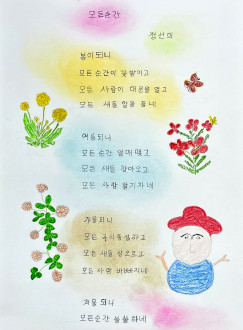 모든순간
정선미
봄이되니
모든순간이 꽃밭이고
모든 사람이 대문을 열고
모든 새들 알을 품네
여름되니
모든순간 열매맺고
모든 새들 찾아오고
모든 사람 활기차네
가을되니
모든 곡식들 살찌고
모든 새들 살오르고
모든 사람 바빠지네
겨울 되니
모든순간